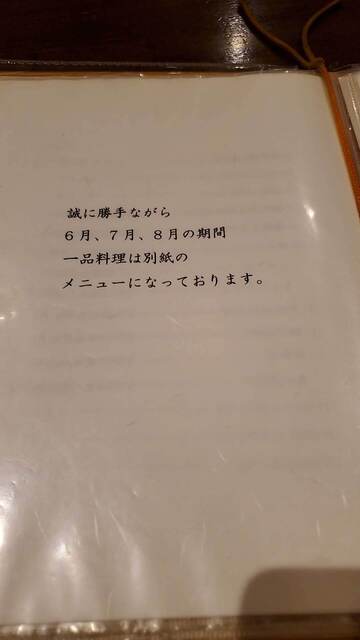 誠に勝手ながら
６月、７月、８月の期間
一品料理は別紙の
メニューになっております。